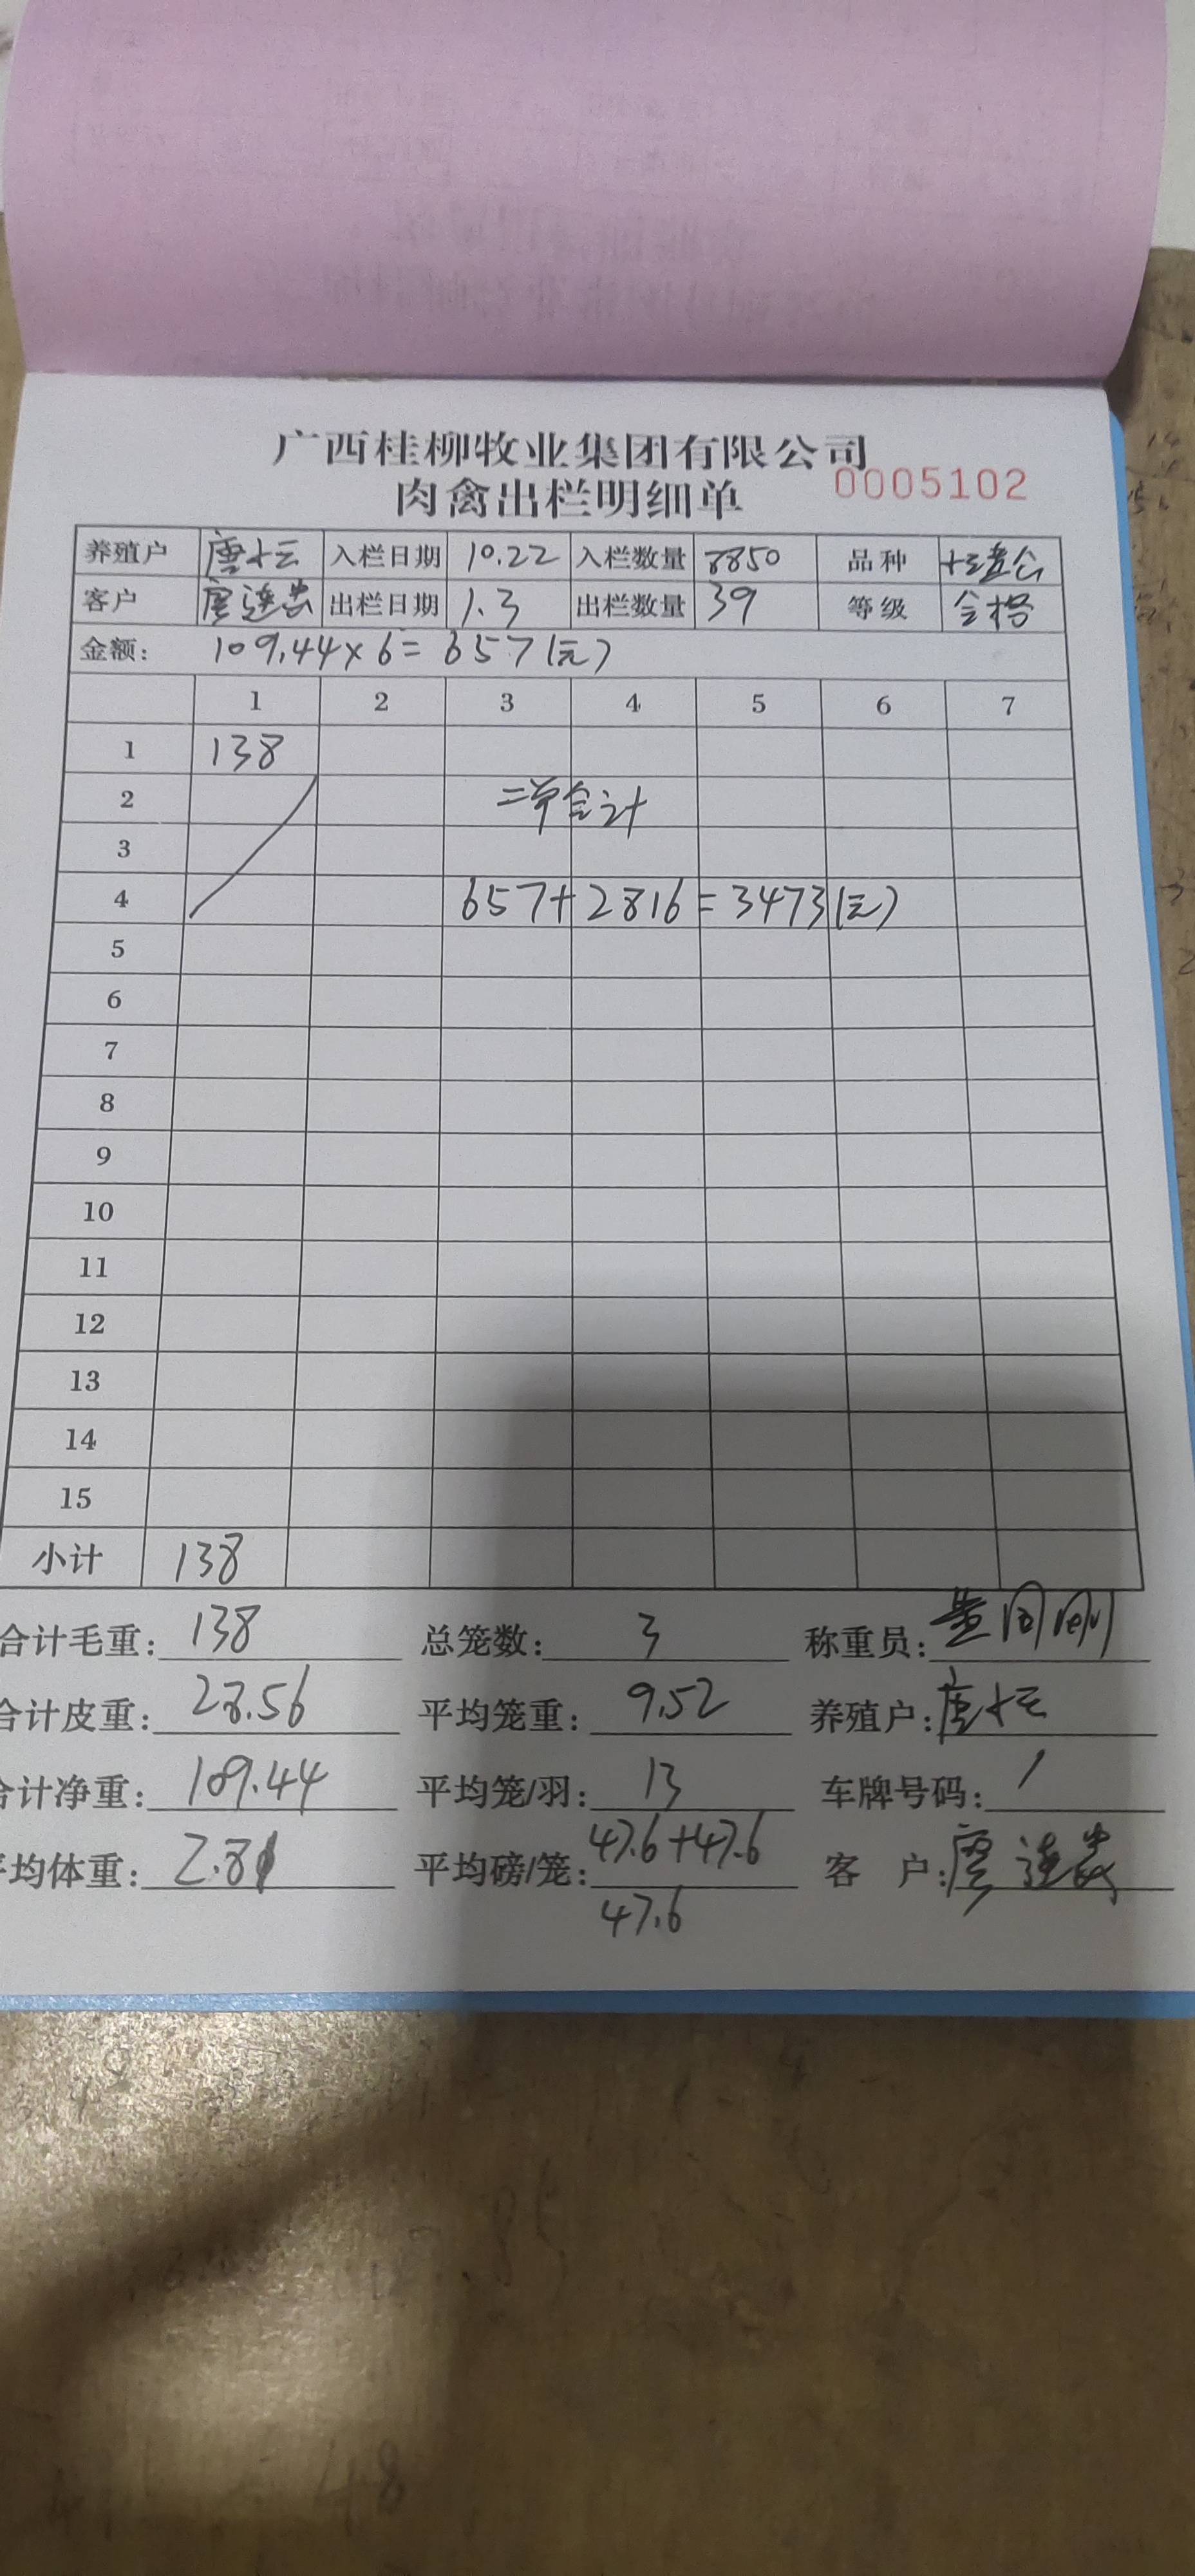 广西桂柳牧业集团有限公司
肉禽出栏明细单 0005102
养殖户 唐 入栏日期 10.22 入栏数量 8850 品种
客户 出栏日期 1.3 出栏数量 39 等级 合格
金额: 109.44×6=657(元)
1 2 3 4 5 6 7
1 138
2 二单合计
3
4 657+2816=3473(元)
5
6
7
8
9
10
11
12
13
14
15
小计 138
合计毛重: 138 总笼数: 3 称重员:
合计皮重: 28.56 平均笼重: 9.52 养殖户: 唐
合计净重: 109.44 平均笼/羽: 13 车牌号码: /
平均体重: 2.81 平均磅/笼: 47.6+47.6 客 户:
47.6